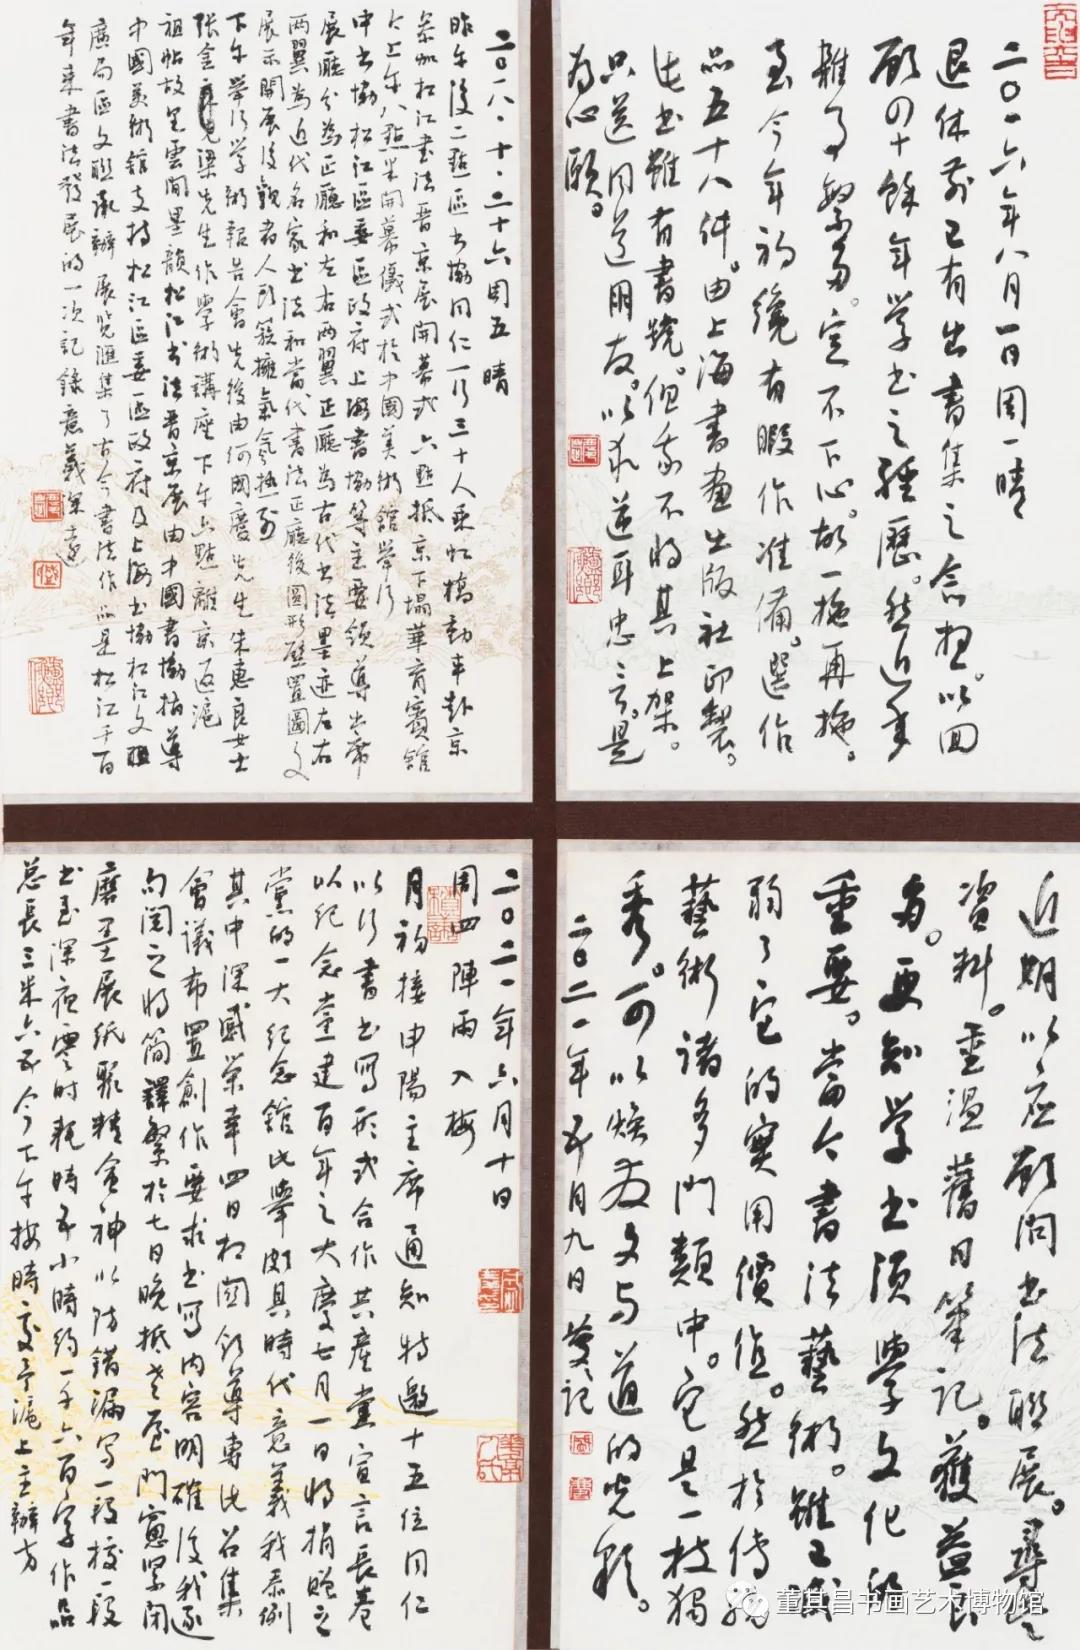 二〇一六年八月一日周一晴
退休前已有出書集之念想。以回
顧四十餘年学书之經歷。然近年
雜事繁多。定不下心。故一拖再拖。
至今年初纔有暇作准備。選作
品五十八件。由上海書畫出版社印製。
此书雖有書號。但我不將其上架。
只送同道朋友。以求逆耳忠言。是
为心願。
二〇一八·十·二十六周五 晴
昨午後二點區书協同仁一行三十人乘虹橋動車赴京
参加松江書法晋京展開幕式六點抵京下塌華育賓館
今上午八點半開幕儀式於中國美術館举行
中书協松江區委區政府上海書協等主要領導出席
展廳分為正廳和左右两翼正廳為古代书法墨迹左右
两翼為近代名家书法和當代書法正廳後圆形壁置圖文
展示開展後觀者人头簇擁氣氛热烈
下午举行学術報告會先後由何國慶先生朱惠良女士
張金梁先生作学術講座下午六點離京返滬
祖帖故里雲間墨韻松江书法晋京展由中國書協指導
中國美術館支持松江區委區政府及上海书協松江文旅
廣局區文联承辦 展览匯集了古今書法作品是松江千百
年来書法發展的一次記錄意義深遠
近期以应顧问书法联展。尋之
资料。重温舊日笔记。獲益良
多。要知学书须學文化的
重要。當今書法藝術。雖已減
弱了它的實用價值。然於傳統
藝術諸多門類中。它是一枝獨
秀。可以焕发文与道的光彩。
二〇二一年五月九日 莫记
二〇二一年六月十日
周四 陣雨入梅
月初接申陽主席通知特邀十五位同仁
以行書书写形式合作共產黨宣言長卷
以纪念堂建百年之大慶七月一日將捐贈之
党的一大纪念館此舉颇具時代意義我忝例
其中深感榮幸四日相關領導專此召集
會議布置創作要求书写内容明確後我逐
句閱之將簡譯繁於七日晚抵老屋門窗紧闭
磨墨展紙聚精會神以防錯漏写一段接一段
书至深夜零时耗時五小時約一千六百字作品
总長三米六五今下午按時交予滬上主辦方
董其昌书画艺术博物馆